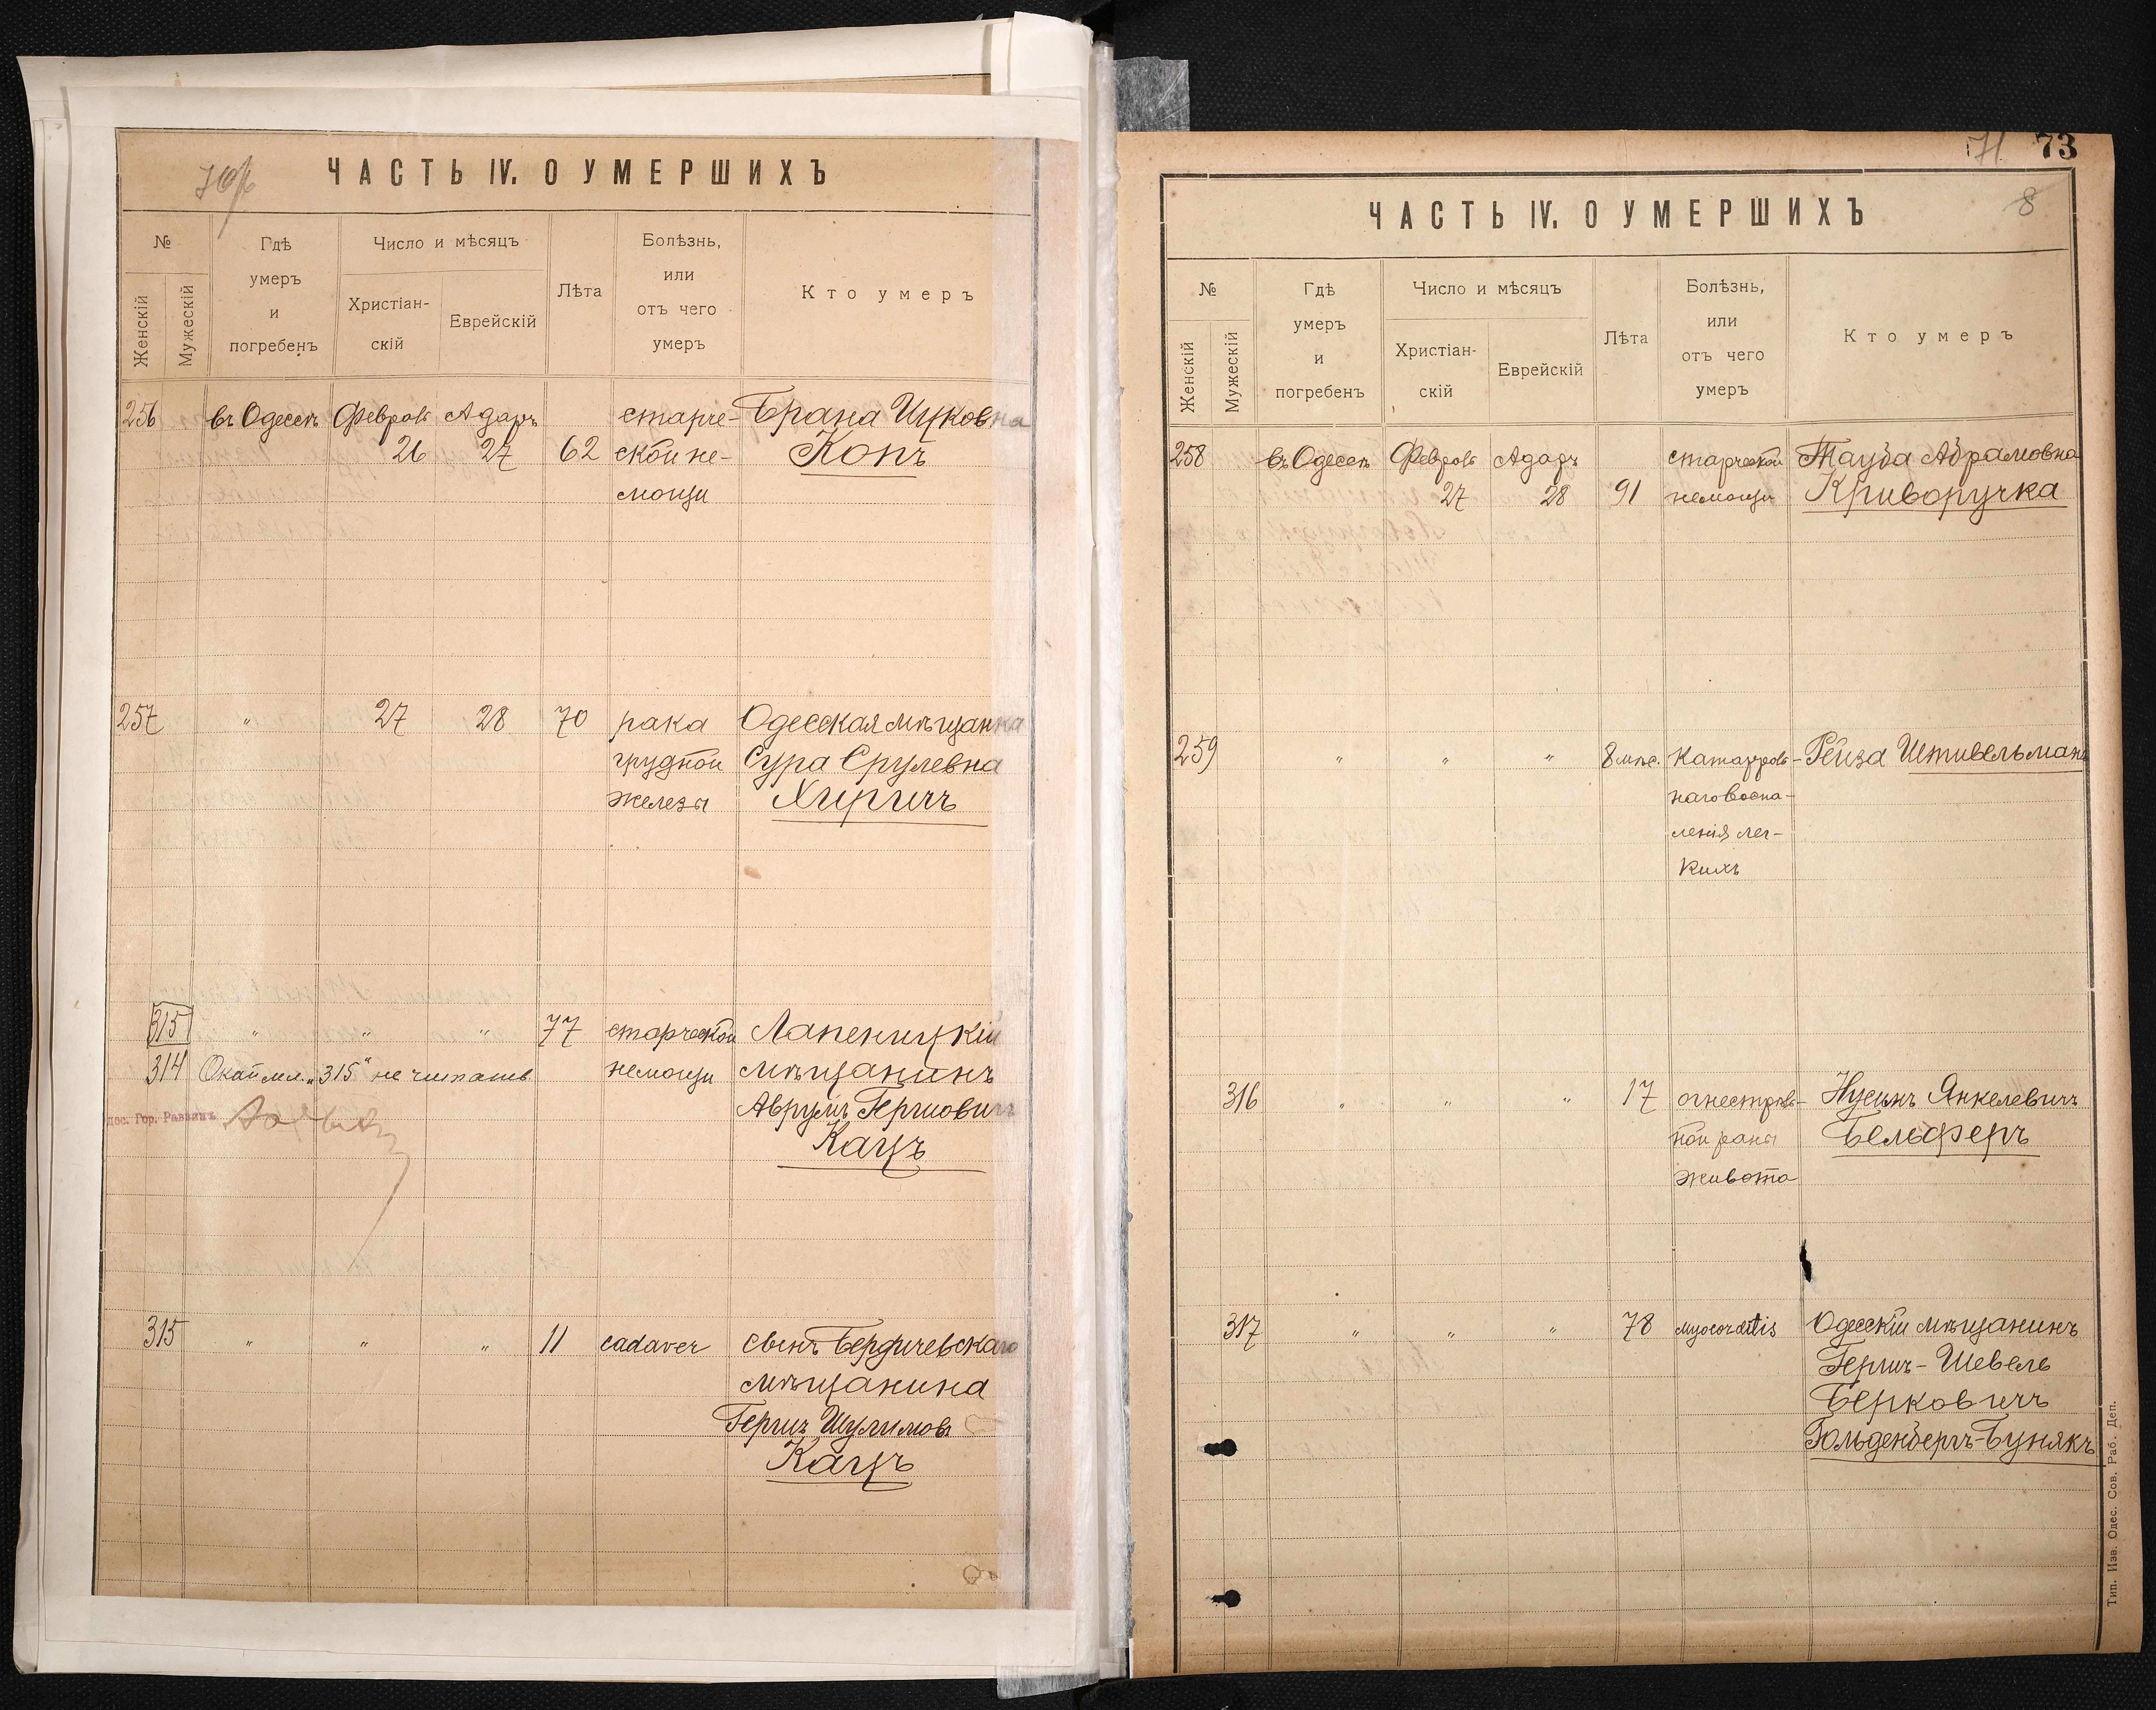 70/об
ЧАСТЬ IV. О УМЕРШИХЪ
№
Женскій
Мужескій
Гдѣ
умеръ
и
погребенъ
Число и мѣсяцъ
Христіан-
скій
Еврейскій
Лѣта
Болѣзнь,
или
отъ чего
умеръ
Кто умеръ
256 въ Одессѣ Февраль Адаръ старче- Брана Ицковна
26 27 62 ской не- Копъ
мощи
257 " 27 28 70 рака Одесская мѣщанка
грудной Сура Срулевна
железы
315 " " " 77 старческой Лапеницкій
314 Окаймл. "315" не читать немощи мѣщанинъ
дес. Гор. Раввинъ Аврумъ Гершовичъ
Кацъ
315 " " " 11 cadaver сынъ Бердичевскаго
мѣщанина
Гершъ Шулимовъ
Кацъ
71 73
8
ЧАСТЬ IV. О УМЕРШИХЪ
№
Женскій
Мужескій
Гдѣ
умеръ
и
погребенъ
Число и мѣсяцъ
Христіан-
скій
Еврейскій
Лѣта
Болѣзнь,
или
отъ чего
умеръ
Кто умеръ
258 въ Одессѣ Февраль Адаръ старческой Тауба Абрамовна
27 28 91 немощи Криворучка
259 " " " 8 мѣс. Катарраль- Рейза Штивельманъ
наго воспа-
ленія лег-
кихъ
316 " " " 17 огнестрѣль- Нусинъ Янкелевичъ
ной раны Бельферъ
живота
317 " " " 78 myocarditis Одесскій мѣщанинъ
Гершъ-Шевель
Берковичъ
Гольденбергъ-Бунякъ
Тип. Изв. Одес. Сов. Раб. Деп.